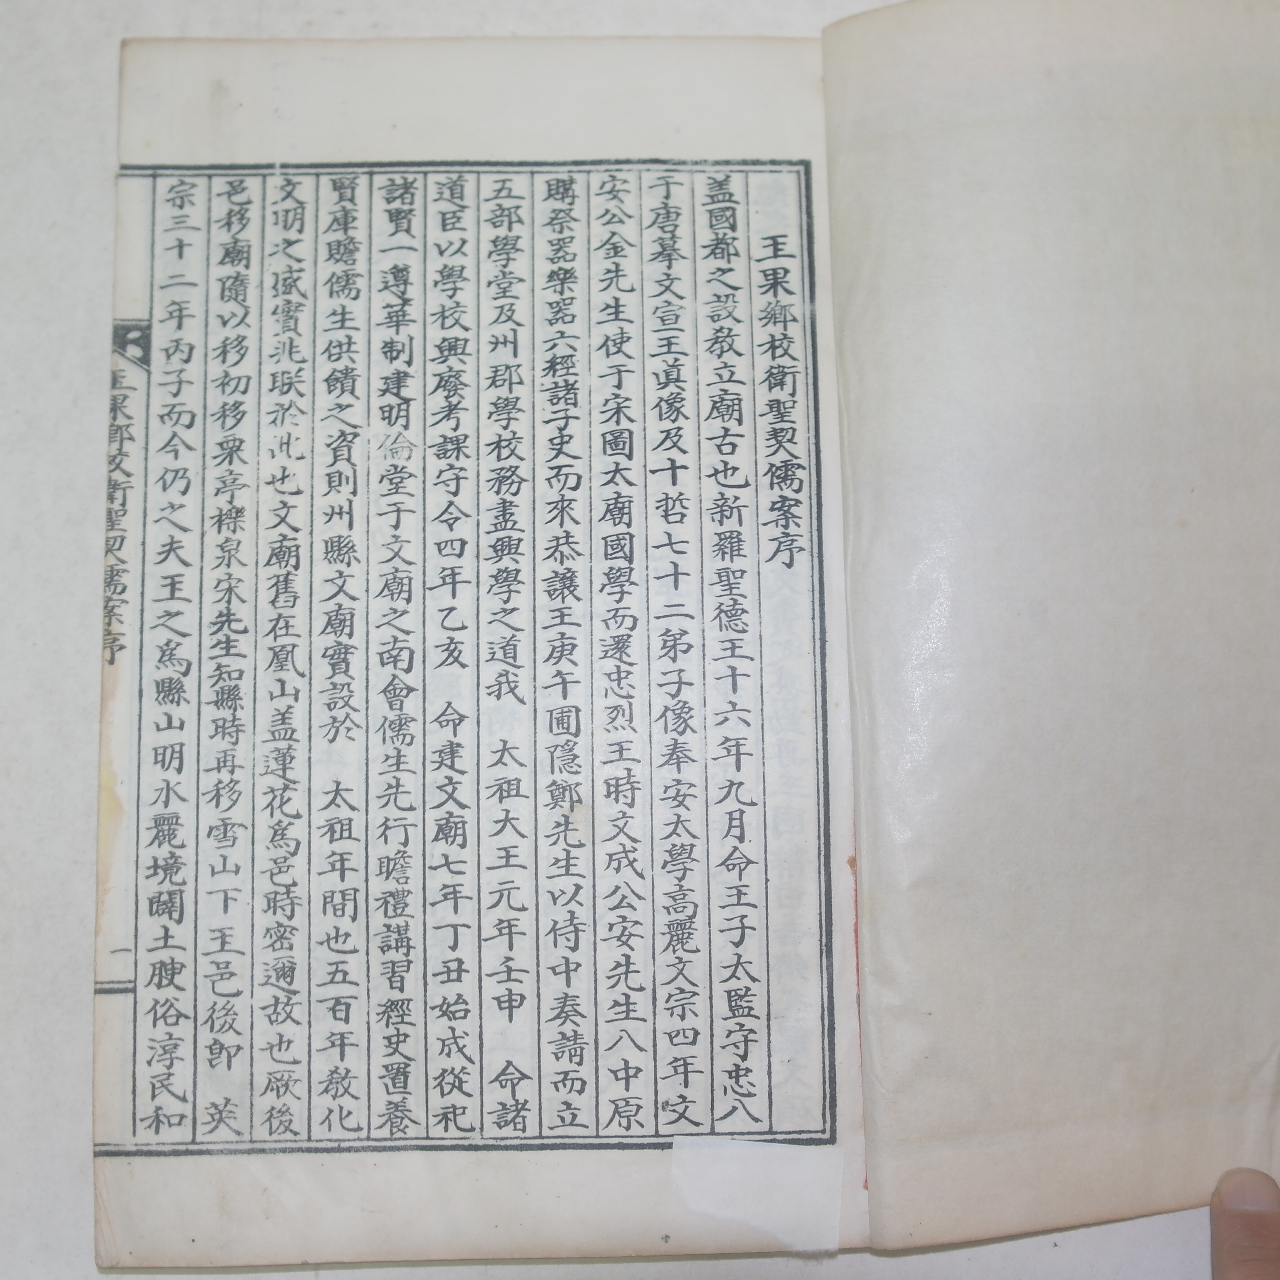 玉果鄉校衛聖契儒案序
盖國都之設敎立廟古也新羅聖德王十六年九月命王子太監守忠入
于唐摹文宣王眞像及十哲七十二弟子像奉安太學高麗文宗四年文
安公金先生使于宋圖太廟國學而還忠烈王時文成公安先生入中原
購祭器樂器六經諸子史而來恭讓王庚午圃隱鄭先生以侍中奏請而立
五部學堂及州郡學校務盡興學之道我 太祖大王元年壬申 命諸
道臣以學校興廢考課守令四年乙亥 命建文廟七年丁丑始成從祀
諸賢一遵華制建明倫堂于文廟之南會儒生先行瞻禮講習經史置養
賢庫贍儒生供饋之資則州縣文廟實設於 太祖年間也五百年敎化
文明之盛實兆联於此也文廟舊在凰山盖蓮花爲邑時密邇故也厥後
邑移廟隨以移初移栗亭櫟泉宋先生知縣時再移雪山下玉邑後卽 英
宗三十二年丙子而今仍之夫玉之爲縣山明水麗境闢土腴俗淳民和
玉果鄉校衛聖契儒案序
一